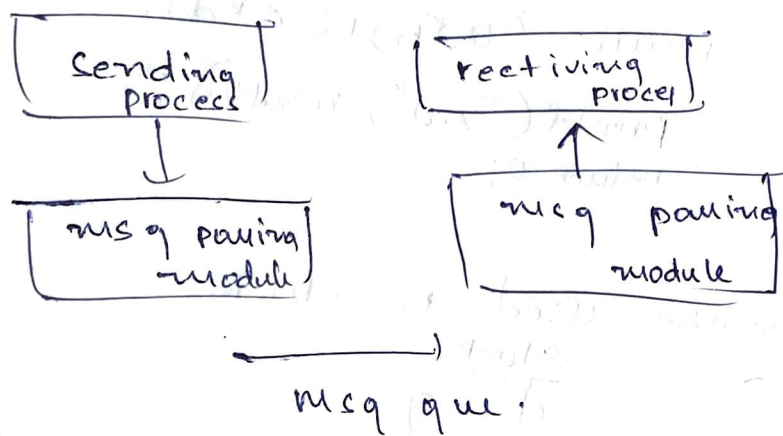 Sending
process
rectiving
proces
msg passing
module
msg passing
module
msg que.